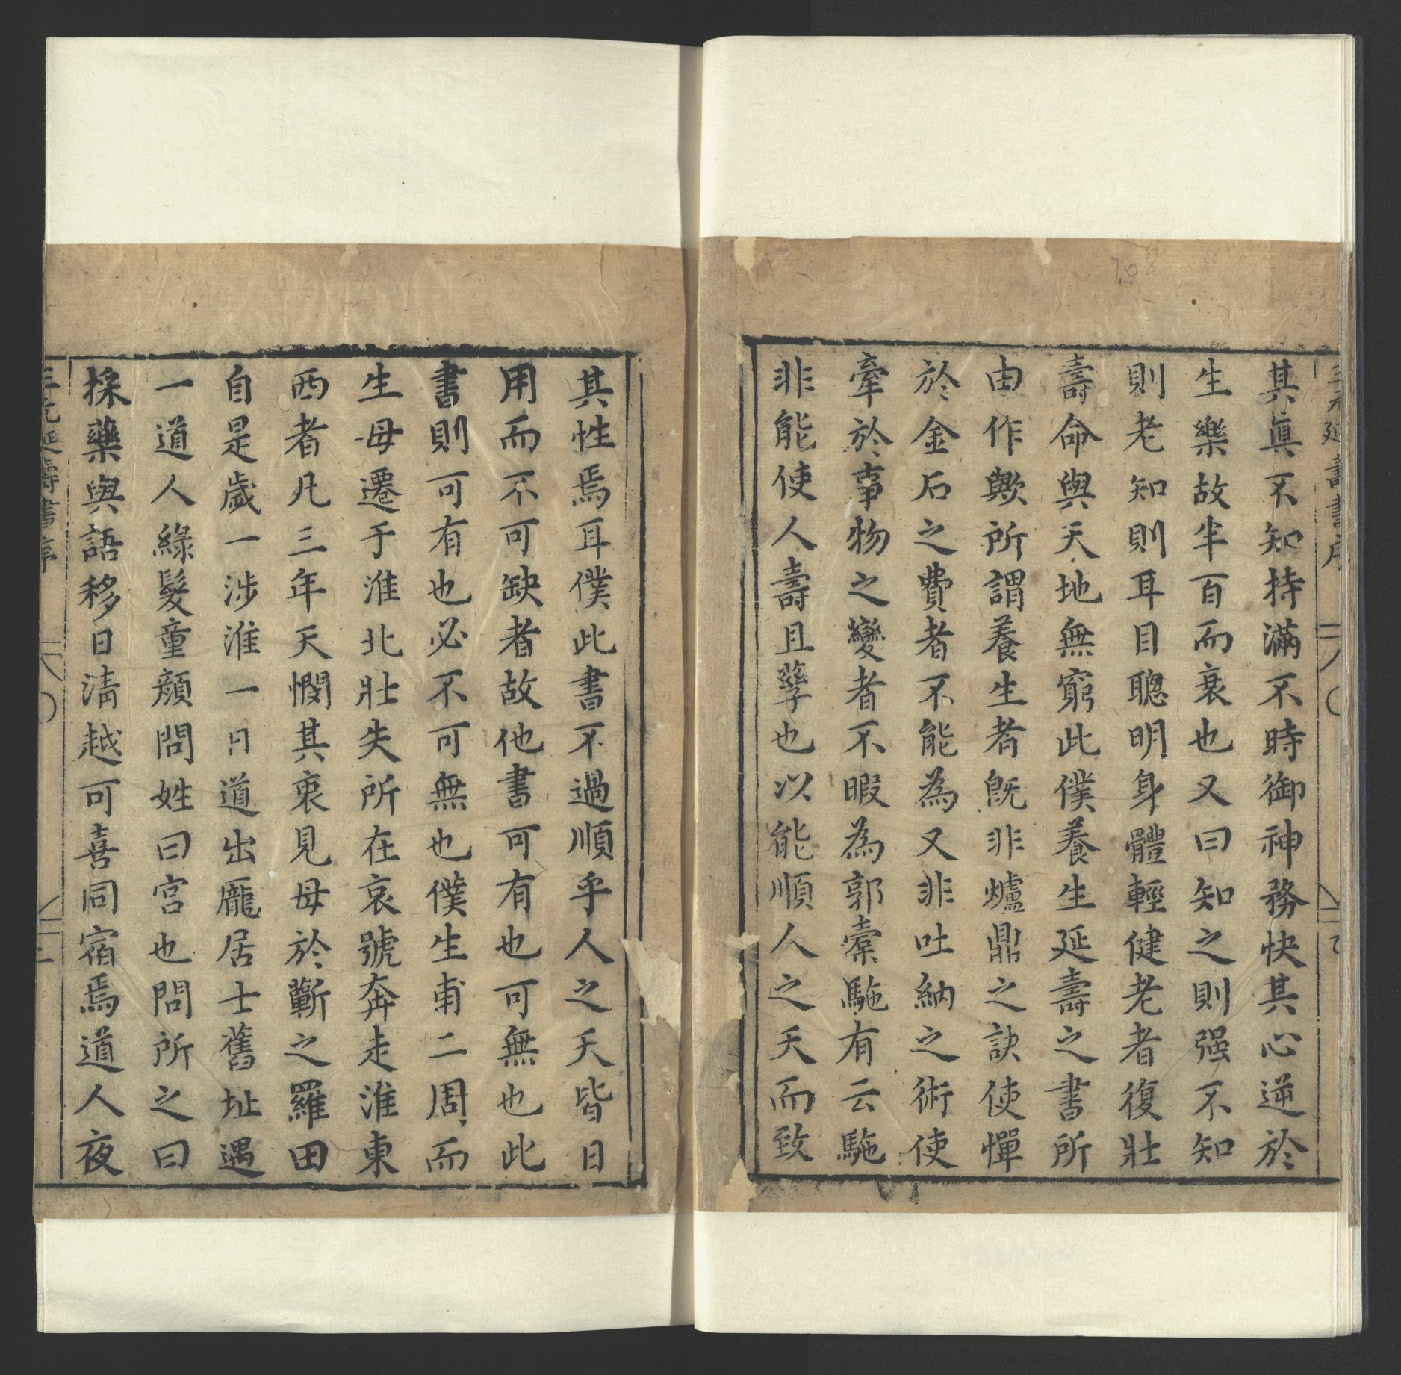 其眞不知持滿不時御神務快其心逆於
生樂故半百而衰也又曰知之則强不知
則老知則耳目聰明身體輕健老者復壯
壽命與天地無窮此僕養生延壽之書所
由作歟所謂養生者旣非爐鼎之訣使憚
於金石之費者不能為又非吐納之術使
牽於事物之變者不暇為郭橐駞有云駞
非能使人壽且孳也以能順人之天而致
其性焉耳僕此書不過順乎人之天皆日
用而不可缺者故他書可有也可無也此
書則可有也必不可無也僕生甫二周而
生母遷于淮北壯失所在哀號奔走淮東
西者凡三年天憫其衷見母於蘄之羅田
自是歲一涉淮一日道出龐居士舊址遇
一道人綠髮童顔問姓曰宫也問所之曰
採藥與語移日清越可喜同宿焉道人夜
三元延壽書序